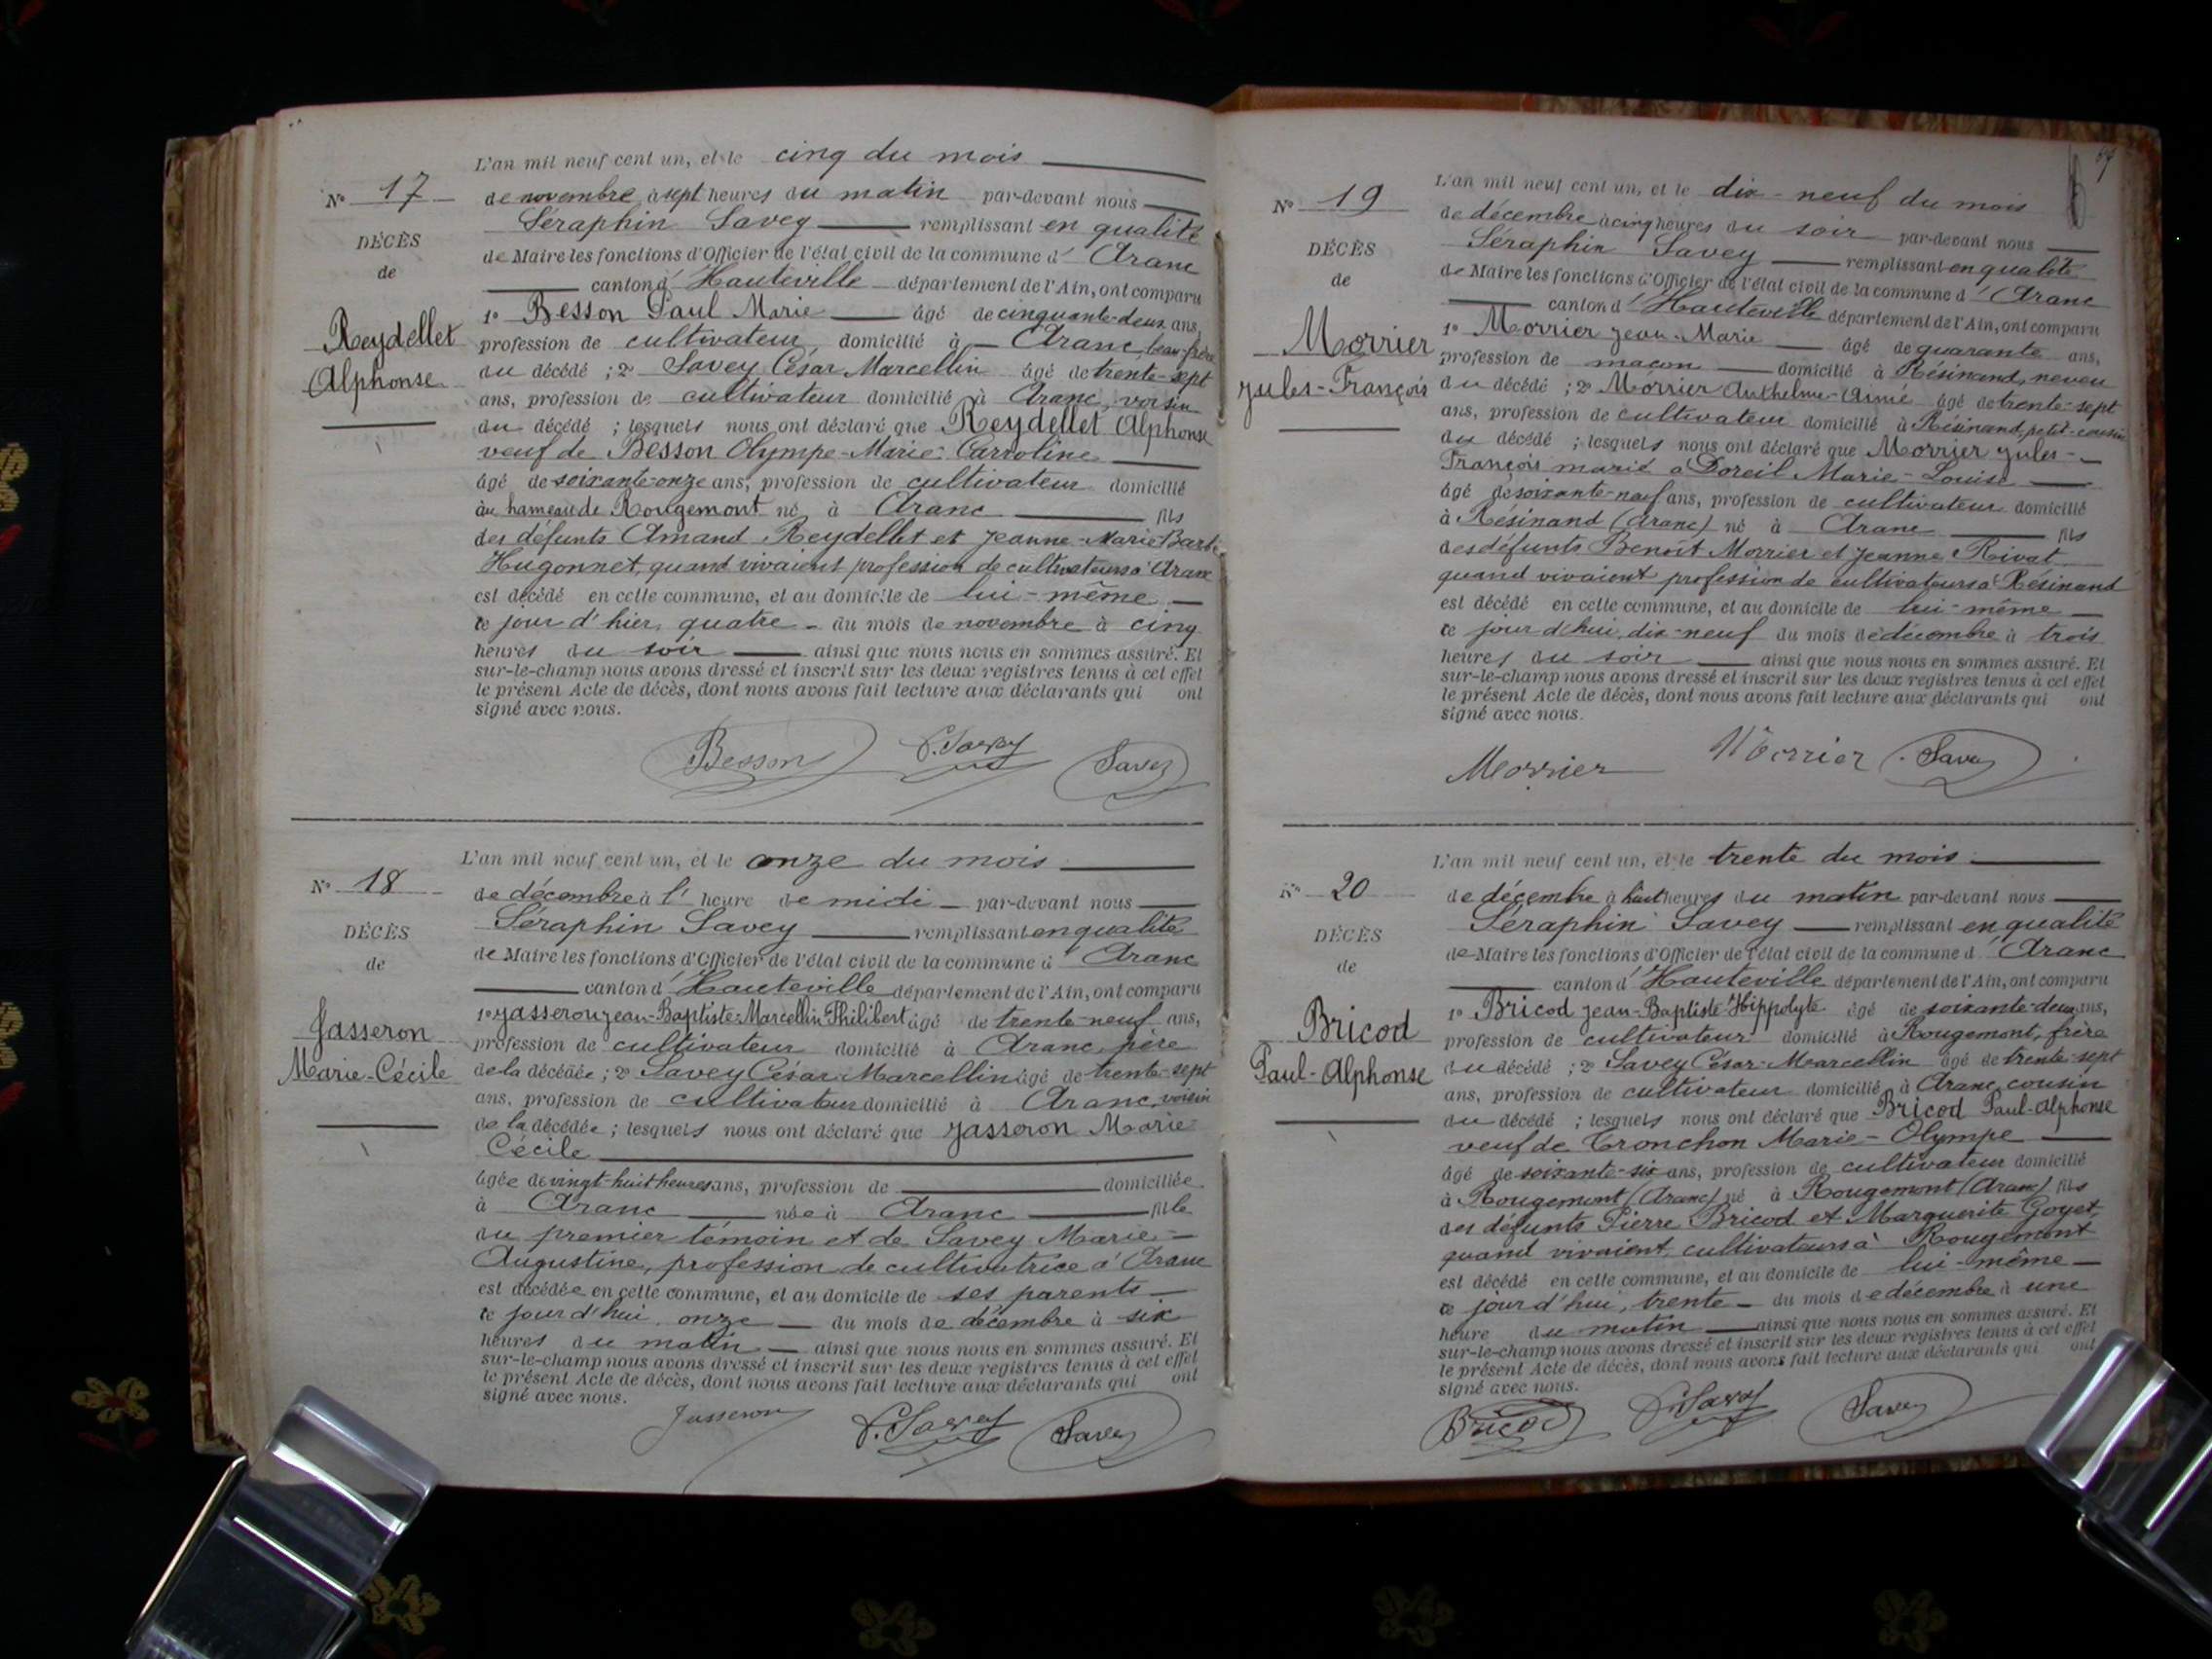 N° 17
DÉCÈS
de
Reydellet
Alphonse
L'an mil neuf cent un, et le cinq du mois
de novembre, à sept heures du matin par-devant nous
Séraphin Savey remplissant en qualité
de Maire les fonctions d'Officier de l'état civil de la commune d' Aranc
canton d' Hauteville département de l'Ain, ont comparu
1° Besson Paul Marie âgé de cinquante-deux ans,
profession de cultivateur, domicilié à Aranc, beau-frère
du décédé ; 2° Savey César Marcellin âgé de trente-sept
ans, profession de cultivateur domicilié à Aranc, voisin
du décédé ; lesquels nous ont déclaré que Reydellet Alphonse
veuf de Besson Olympe-Marie-Carroline
âgé de soixante-onze ans, profession de cultivateur domicilié
au hameau de Rougemont né à Aranc fils
des défunts Amand Reydellet et Jeanne-Marie Barbe
Hugonnet, quand vivaient profession de cultivateurs à Aranc
est décédé en cette commune, et au domicile de lui-même
ce jour d'hier, quatre du mois de novembre à cinq
heures du soir ainsi que nous nous en sommes assuré. Et
sur-le-champ nous avons dressé et inscrit sur les deux registres tenus à cet effet
le présent Acte de décès, dont nous avons fait lecture aux déclarants qui ont
signé avec nous.
Besson C. Savey Savey
N° 18
DÉCÈS
de
Jasseron
Marie-Cécile
L'an mil neuf cent un, et le onze du mois
de décembre à l' heure de midi par-devant nous
Séraphin Savey remplissant en qualité
de Maire les fonctions d'Officier de l'état civil de la commune d' Aranc
canton d' Hauteville département de l'Ain, ont comparu
1° Jasseron Jean-Baptiste-Marcellin Philibert âgé de trente-neuf ans,
profession de cultivateur domicilié à Aranc, père
de la décédée ; 2° Savey César Marcellin âgé de trente-sept
ans, profession de cultivateur domicilié à Aranc, voisin
de la décédée ; lesquels nous ont déclaré que Jasseron Marie
Cécile
âgée de vingt-huit heures ans, profession de domiciliée
à Aranc née à Aranc fille
du premier témoin et de Savey Marie-
Augustine, profession de cultivatrice à Aranc
est décédée en cette commune, et au domicile de ses parents
ce jour d'hui onze du mois de décembre à six
heures du matin ainsi que nous nous en sommes assuré. Et
sur-le-champ nous avons dressé et inscrit sur les deux registres tenus à cet effet
le présent Acte de décès, dont nous avons fait lecture aux déclarants qui ont
signé avec nous.
Jasseron C. Savey Savey
N° 19
DÉCÈS
de
Morrier
Jules-François
L'an mil neuf cent un, et le dix-neuf du mois
de décembre à cinq heures du soir par-devant nous
Séraphin Savey remplissant en qualité
de Maire les fonctions d'Officier de l'état civil de la commune d' Aranc
canton d' Hauteville département de l'Ain, ont comparu
1° Morrier Jean-Marie âgé de quarante ans,
profession de maçon domicilié à Résinand, neveu
du décédé ; 2° Morrier Anthelme-Aimé âgé de trente-sept
ans, profession de cultivateur domicilié à Résinand, petit-cousin
du décédé ; lesquels nous ont déclaré que Morrier Jules-
François marié à Doreil Marie-Louise
âgé de soixante-neuf ans, profession de cultivateur domicilié
à Résinand (Aranc) né à Aranc fils
des défunts Benoît Morrier et Jeanne Rivat
quand vivaient profession de cultivateurs à Résinand
est décédé en cette commune, et au domicile de lui-même
ce jour d'hui, dix-neuf du mois de décembre à trois
heures du soir ainsi que nous nous en sommes assuré. Et
sur-le-champ nous avons dressé et inscrit sur les deux registres tenus à cet effet
le présent Acte de décès, dont nous avons fait lecture aux déclarants qui ont
signé avec nous.
Morrier Morrier Savey
N° 20
DÉCÈS
de
Bricod
Paul-Alphonse
L'an mil neuf cent un, et le trente du mois
de décembre à huit heures du matin par-devant nous
Séraphin Savey remplissant en qualité
de Maire les fonctions d'Officier de l'état civil de la commune d' Aranc
canton d' Hauteville département de l'Ain, ont comparu
1° Bricod Jean-Baptiste-Hippolyte âgé de soixante-deux ans,
profession de cultivateur domicilié à Rougemont, frère
du décédé ; 2° Savey César-Marcellin âgé de trente-sept
ans, profession de cultivateur domicilié à Aranc, cousin
du décédé ; lesquels nous ont déclaré que Bricod Paul-Alphonse
veuf de Tronchon Marie-Olympe
âgé de soixante-six ans, profession de cultivateur domicilié
à Rougemont (Aranc) né à Rougemont (Aranc) fils
des défunts Pierre Bricod et Marguerite Goyet,
quand vivaient, cultivateurs à Rougemont
est décédé en cette commune, et au domicile de lui-même
ce jour d'hui, trente du mois de décembre à une
heure du matin ainsi que nous nous en sommes assuré. Et
sur-le-champ nous avons dressé et inscrit sur les deux registres tenus à cet effet
le présent Acte de décès, dont nous avons fait lecture aux déclarants qui ont
signé avec nous.
Bricod C. Savey Savey